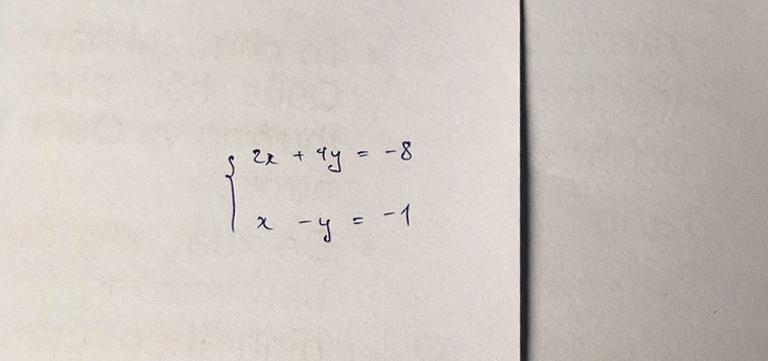 2x + 4y = -8
x - y = -1